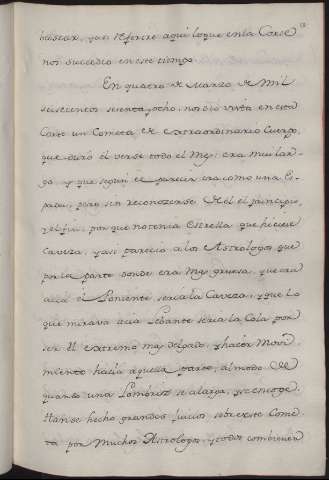 buscar, que referire aqui loque enla Corte
nos succedio en este tiempo.
En quatro de Marzo de Mil
seiscientos sesenta y ocho, nos dio vista en esta
Corte un Cometa de extraordinario Cuerpo,
que duró el verse todo el Mes; era mui lar-
go, y que segun el parecia era como una Es-
pada, pero sin reconozerse de él el principio,
y el fin, por que no tenia Estrella que hiciese
Caveza, y asi parecio a los Astrologos, que
por la parte donde era mas gruesa, que era
acia el Poniente seria la Caveza, y que lo
que mirava acia Lebante seria la Cola por
ser el extremo mas delgado, y hacer Movi-
miento hacia aquella parte, al modo de
quando una Lombriz se alarga, y se encoge.
Hanse hecho grandes juicios sobre este Come-
ta por muchos Astrologos, y todos combienen